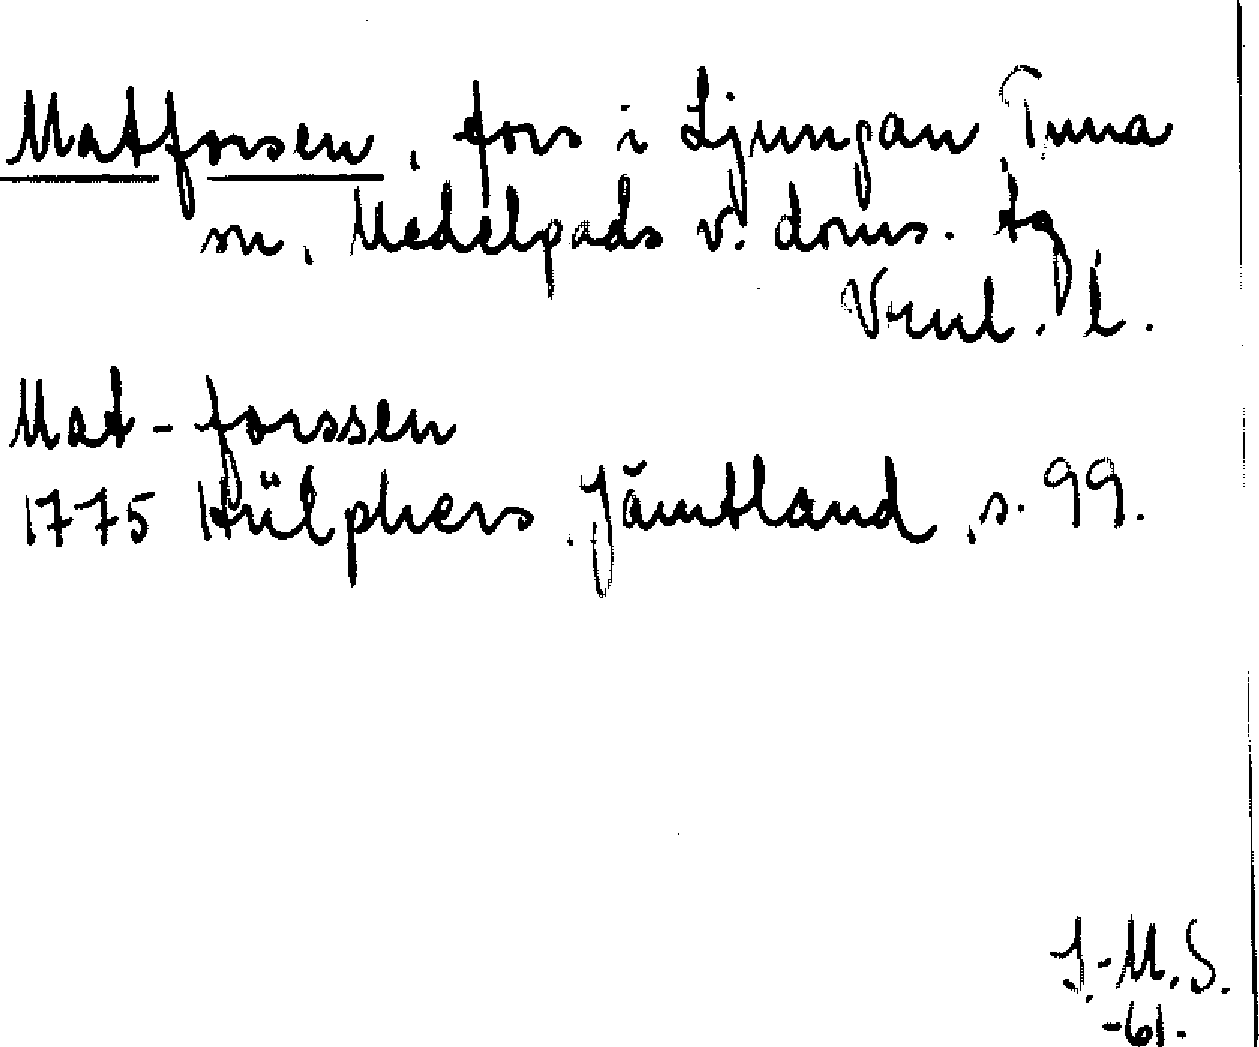 Matforsen, fors i Ljungan, Tuna
sn, Medelpads v. doms. tg
Vrnl. l.
Mat-forssen
1775 Hülphers, Jämtland, s. 99.
I.-M.S.
-61.